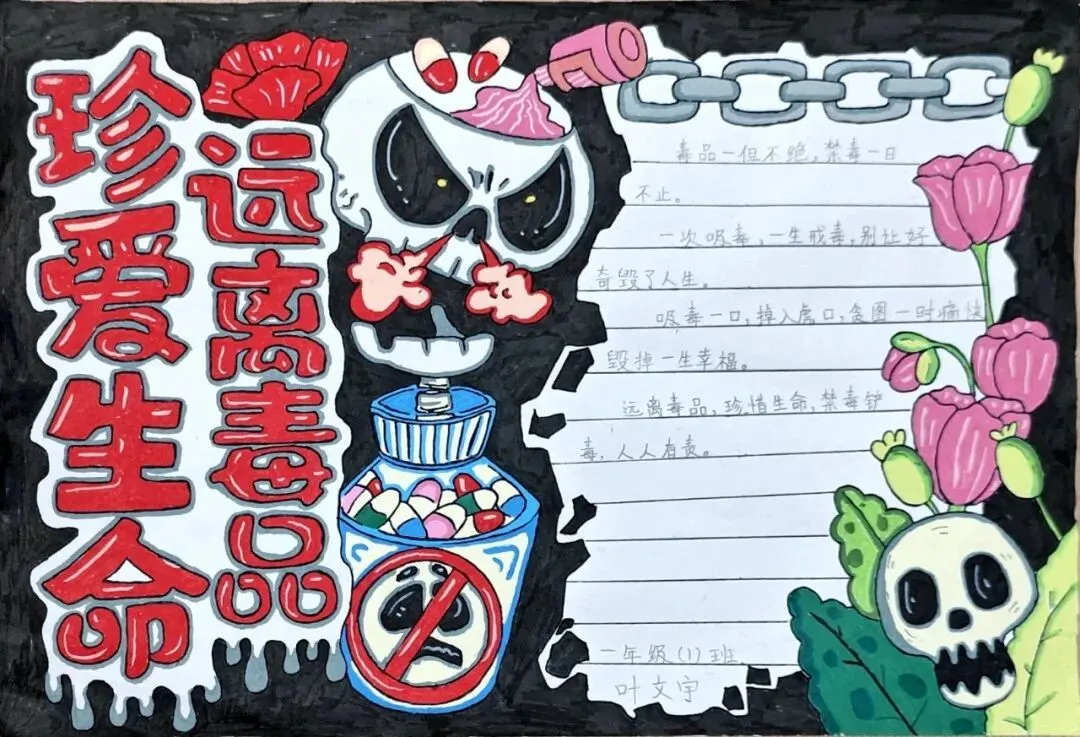 珍爱生命
远离毒品
毒品一但不绝，禁毒一日
不止。
一次吸毒，一生戒毒，别让好
奇毁了人生。
吸毒一口，掉入虎口，贪图一时痛快
毁掉一生幸福。
远离毒品，珍惜生命，禁毒铲
毒，人人有责。
一年级(1)班
叶文宇